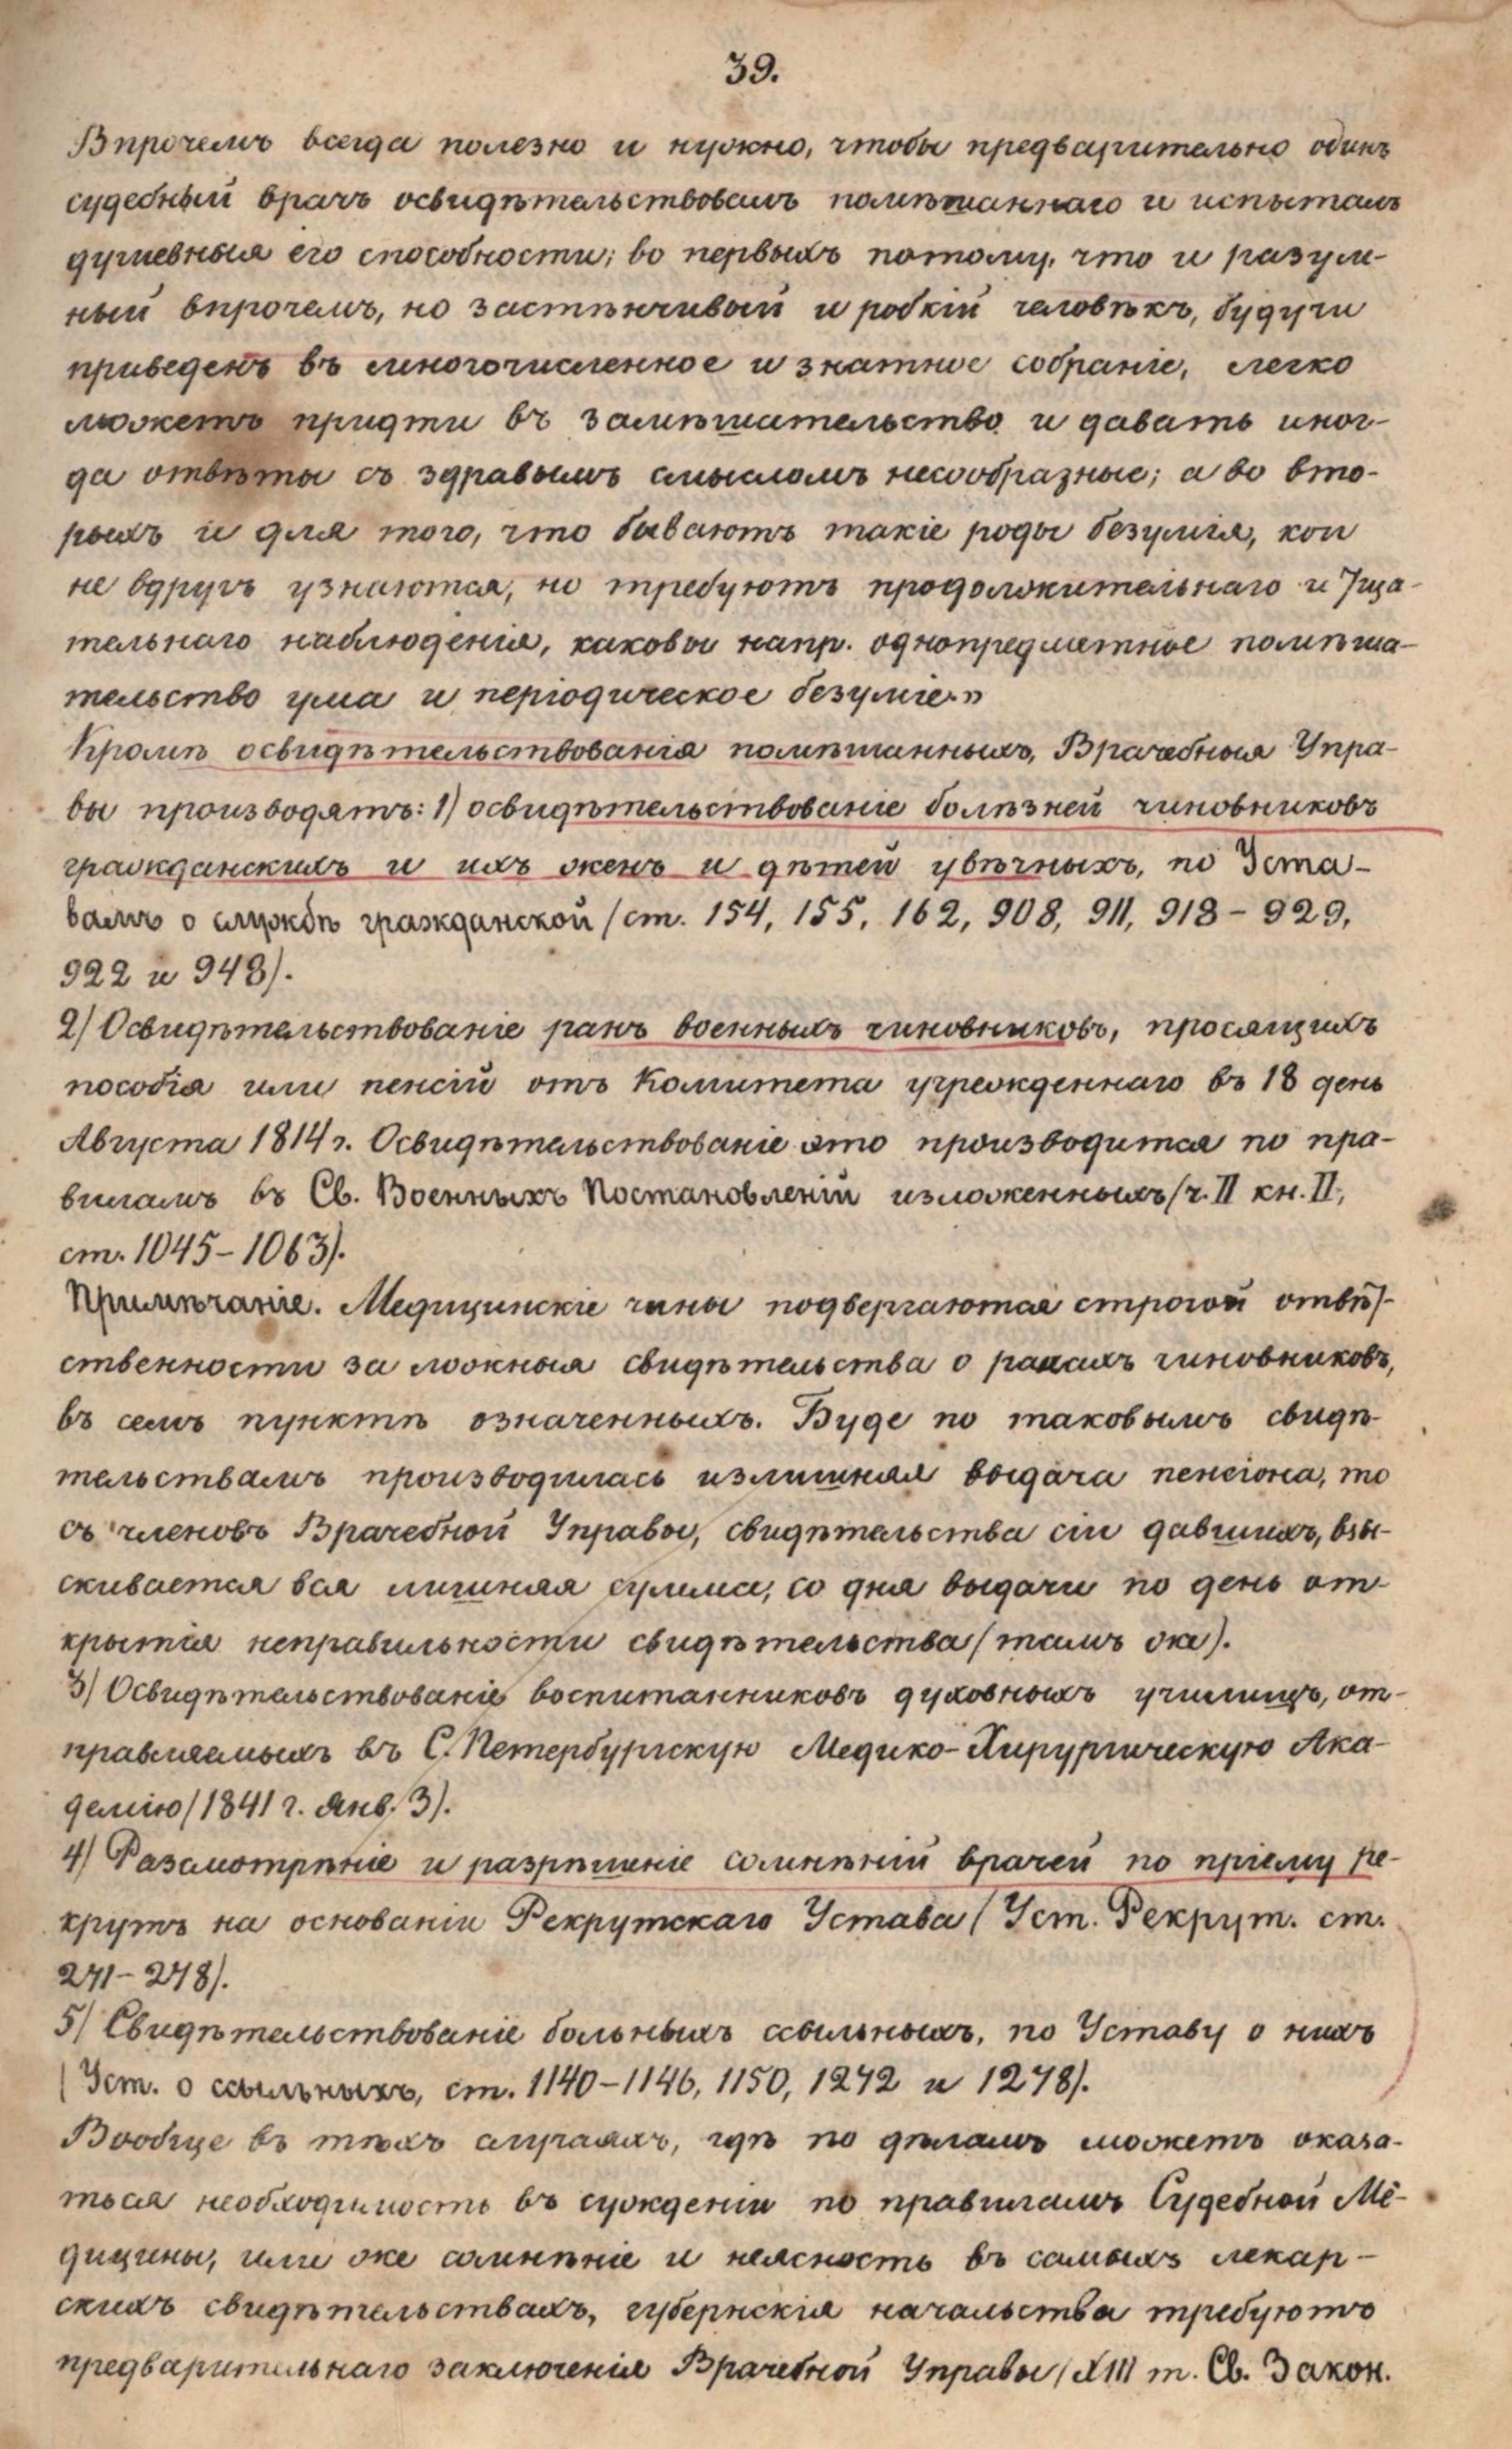 39.
Впрочемъ всегда полезно и нужно, чтобы предварительно одинъ
судебный врачъ освидѣтельствовалъ помѣшаннаго и испыталъ
душевныя его способности; во первыхъ потому, что и разум-
ный впрочемъ, но застѣнчивый и робкій человѣкъ, будучи
приведенъ въ многочисленное и знатное собраніе, легко
можетъ придти въ замѣшательство и давать иног-
да отвѣты съ здравымъ смысломъ несообразные; а во вто-
рыхъ и для того, что бываютъ такіе роды безумія, кои
не вдругъ узнаются, но требуютъ продолжительнаго и тща-
тельнаго наблюденія, каковы напр. однопредметное помѣша-
тельство ума и періодическое безуміе.»
Кромѣ освидѣтельствованія помѣшанныхъ, Врачебныя Упра-
вы производятъ: 1) освидѣтельствованіе болѣзней чиновниковъ
гражданскихъ и ихъ женъ и дѣтей увѣчныхъ, по Уста-
вамъ о службѣ гражданской (ст. 154, 155, 162, 908, 911, 918 – 929,
922 и 948).
2) Освидѣтельствованіе ранъ военныхъ чиновниковъ, просящихъ
пособія или пенсій отъ Комитета учрежденнаго въ 18 день
Августа 1814 г. Освидѣтельствованіе это производится по пра-
виламъ въ Св. Военныхъ Постановленій изложенныхъ (ч. II кн. II,
ст. 1045 – 1063).
Примѣчаніе. Медицинскіе чины подвергаются строгой отвѣт-
ственности за ложныя свидѣтельства о ранахъ чиновниковъ,
въ семъ пунктѣ означенныхъ. Буде по таковымъ свидѣ-
тельствамъ производилась излишняя выдача пенсіона, то
съ членовъ Врачебной Управы, свидѣтельства сіи давшихъ, взы-
скивается вся лишняя сумма, со дня выдачи по день от-
крытія неправильности свидѣтельства (тамъ же).
3) Освидѣтельствованіе воспитанниковъ духовныхъ училищъ, от-
правляемыхъ въ С. Петербургскую Медико-Хирургическую Ака-
демію (1841 г. Янв. 3).
4) Разсмотрѣніе и разрѣшеніе сомнѣній врачей по пріему ре-
крутъ на основаніи Рекрутскаго Устава (Уст. Рекрут. ст.
271 – 278).
5) Свидѣтельствованіе больныхъ ссыльныхъ, по Уставу о нихъ
(Уст. о ссыльныхъ, ст. 1140 – 1146, 1150, 1272 и 1278).
Вообще въ тѣхъ случаяхъ, гдѣ по дѣламъ можетъ оказа-
ться необходимость въ сужденіи по правиламъ Судебной Ме-
дицины, или же сомнѣніе и неясность въ самыхъ лекар-
скихъ свидѣтельствахъ, губернскія начальства требуютъ
предварительнаго заключенія Врачебной Управы (XIII т. Св. Закон.